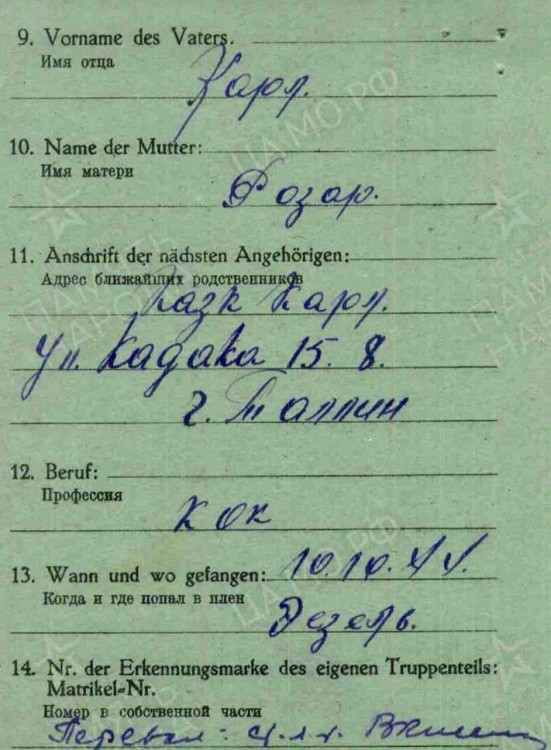 9. Vorname des Vaters.
Имя отца
Карл.
10. Name der Mutter:
Имя матери
Розар.
11. Anschrift der nächsten Angehörigen:
Адрес ближайших родственников
Казк Карл.
ул. Кадака 15. 8.
г. Таллин
12. Beruf:
Профессия
Кок
13. Wann und wo gefangen: 10.10.44.
Когда и где попал в плен
Эзель.
14. Nr. der Erkennungsmarke des eigenen Truppenteils:
Matrikel-Nr.
Номер в собственной части
ЦАМО РФ